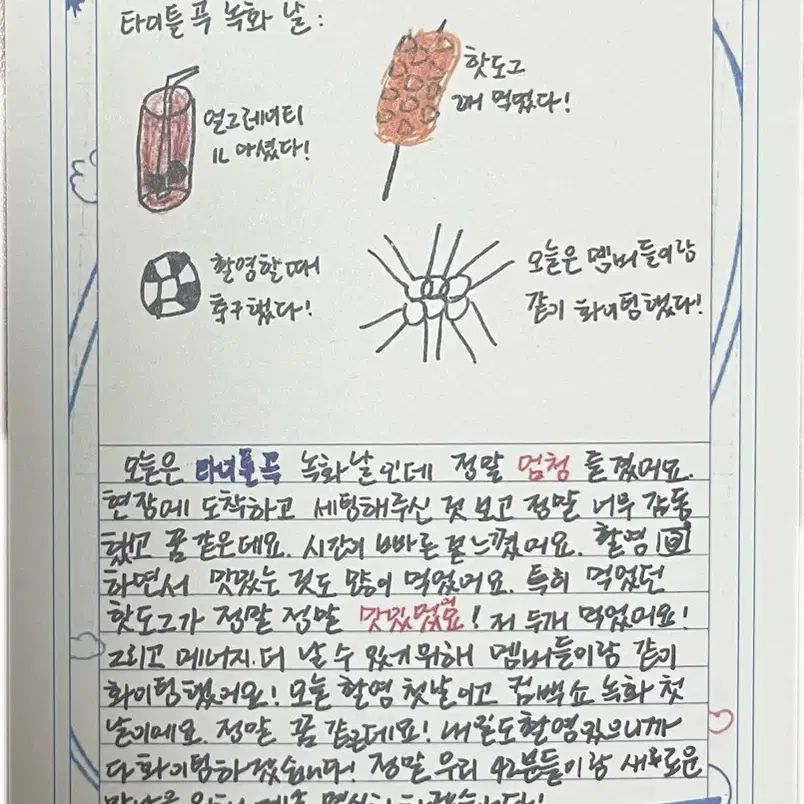 타이틀 곡 녹화 날:
얼그레이티
1L 마셨다!
핫도그
2개 먹었다!
촬영할때
축구했다!
오늘은 멤버들이랑
같이 화이팅했다!
오늘은 타이틀곡 녹화날인데 정말 엄청 즐겼어요.
현장에 도착하고 세팅해주신 것 보고 정말 너무 감동
했고 꿈 같은데요. 시간이 빠른 걸 느꼈어요. 촬영
하면서 맛있는 것도 많이 먹었어요. 특히 먹었던
핫도그가 정말 정말 맛있었어요! 저 두개 먹었어요!
그리고 에너지 더 날 수 있게 위해 멤버들이랑 같이
화이팅했어요! 오늘 촬영 첫날이고 컴백쇼 녹화 첫
날이에요. 정말 꿈 같은데요! 내일도 촬영있으니까
다 화이팅하겠습니다! 정말 우리 42분들이랑 새로운